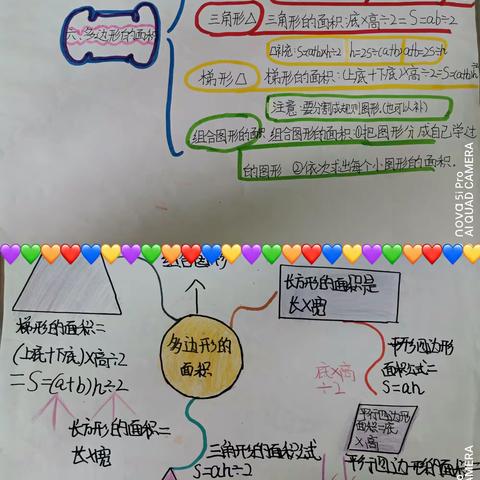 三角形△ 三角形的面积:底×高÷2=S=ah÷2
六、多边形的面积
S=(a+b)×h÷2 h=2S÷(a+b) a+b=2S÷h
梯形△ 梯形的面积:(上底+下底)×高÷2=S=(a+b)h÷2
注意:要分割成规则图形。(也可以补)
组合图形的面积 组合图形的面积:①把图形分成自己学过
的图形 ②依次求出每个小图形的面积.
nova 5i Pro
AI QUAD CAMERA
组合图形
长方形的面积是
长×宽
梯形的面积=
(上底+下底)×高÷2
=S=(a+b)h÷2
多边形的
面积
平行四边形
面积公式=
S=ah
底×高
÷2
平行四边形
面积=底
×高
长方形的面积=
长×宽
三角形的面积公式
S=ah÷2
平行四边形的面积=
CAMERA